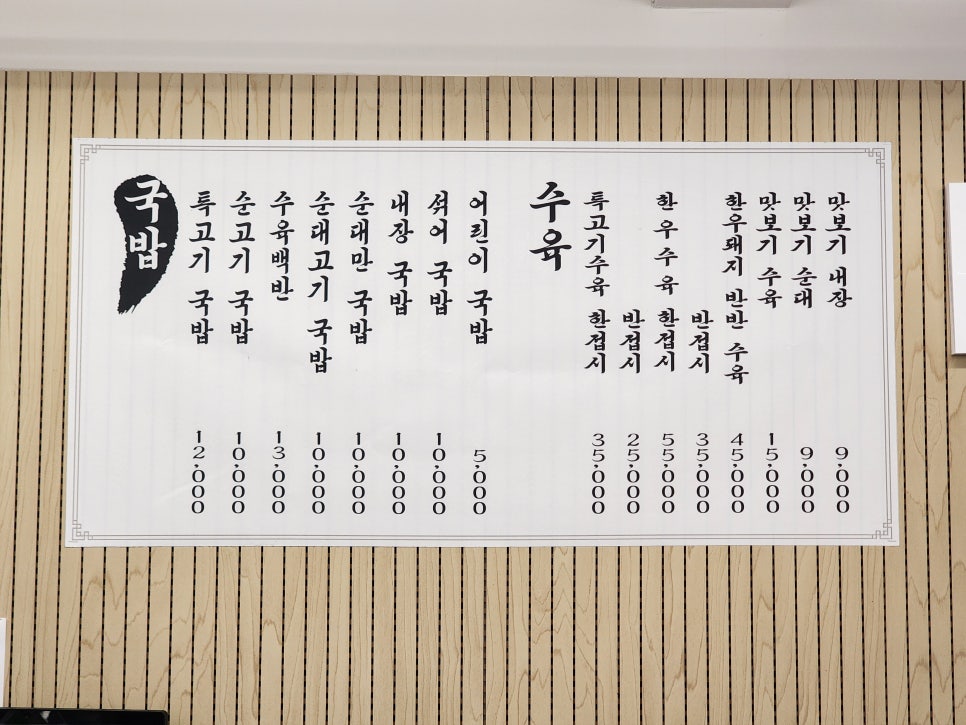 국밥
특고기 국밥 12,000
순고기 국밥 10,000
수육백반 13,000
순대고기 국밥 10,000
순대만 국밥 10,000
내장 국밥 10,000
섞어 국밥 10,000
어린이 국밥 5,000
수육
특고기수육 한접시 35,000
반접시 25,000
한우수육 한접시 55,000
반접시 35,000
한우돼지 반반 수육 45,000
맛보기 수육 15,000
맛보기 순대 9,000
맛보기 내장 9,000